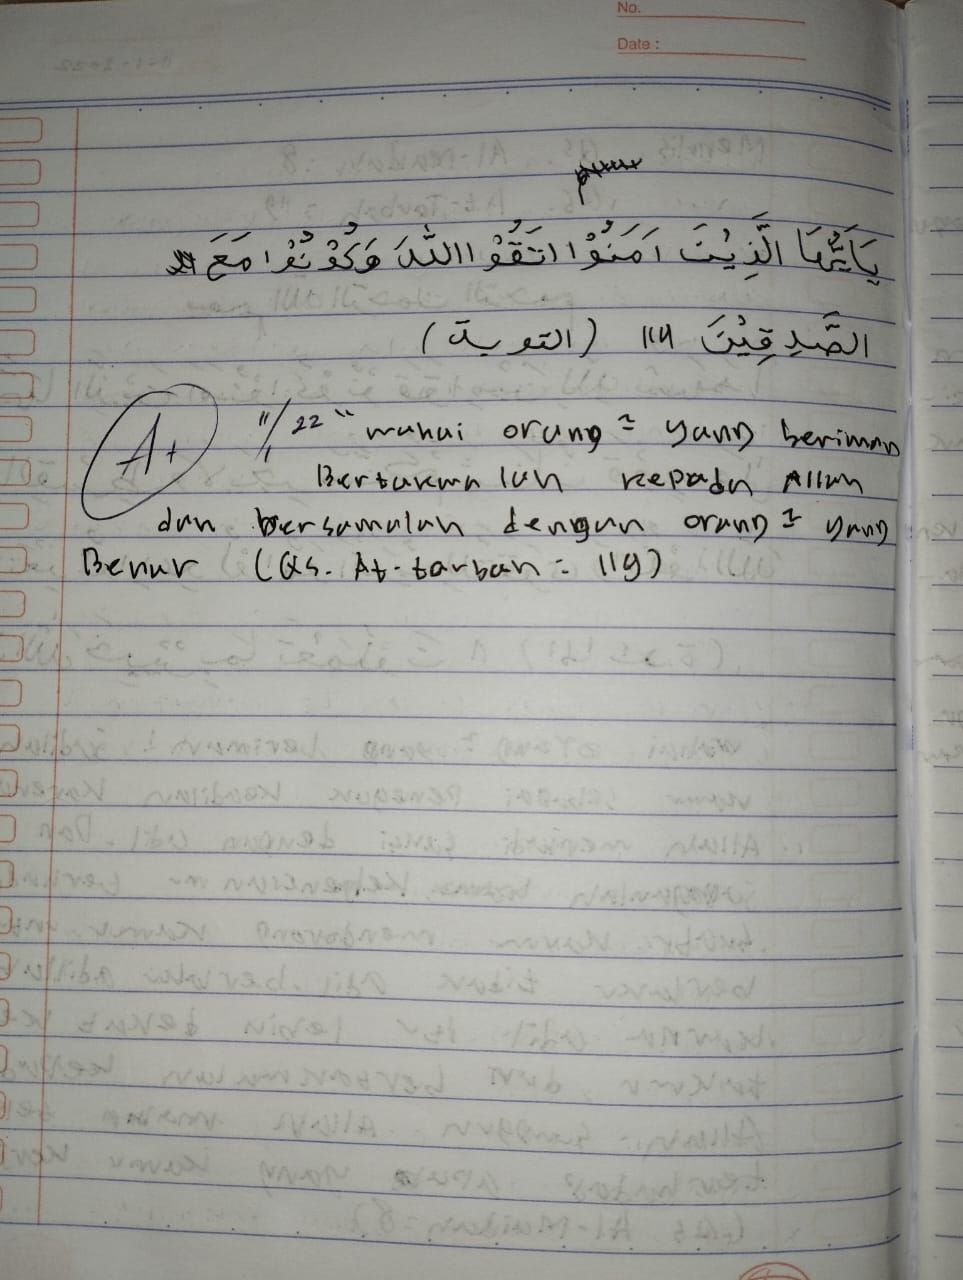 No.
Date :
يَاَيُّهَا الَّذِيْنَ اٰمَنُوْا اتَّقُوْا اللّٰهَ وَكُوْنُوْا مَعَ
الصّٰدِقِيْنَ ١١٩ (التوبة)
A+ 11/1 22 " wahai orang ² yang beriman
Bertakwa lah kepada Allah
dan bersamalah dengan orang ² yang
Benar (Qs. At-taubah = 119)